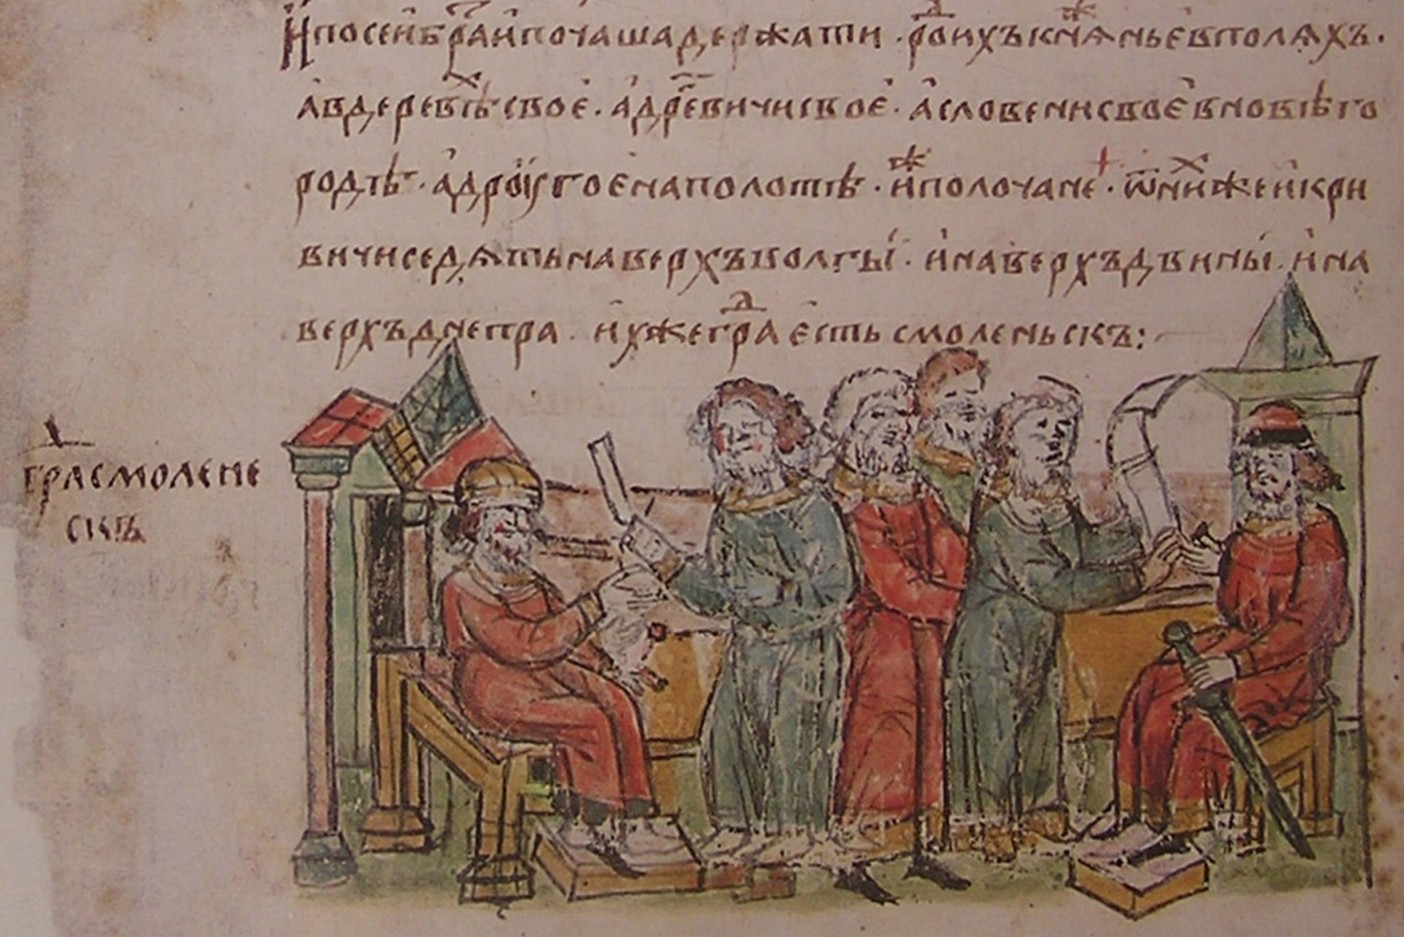 И по сеи братьи почаша держати родъ ихъ кнѧженье в полѧхъ ·
а в деревлѣхъ своє · а дрегвичи своє · а словени своє в новѣго
родѣ · а другоє на полотѣ · иже полочане · ѿ нихже и кри
вичи седѧть на верхъ волгы · и на верхъ двины · и на
верхъ днепра · ихже градъ єсть смоленьскъ:
градъ смолене
скъ